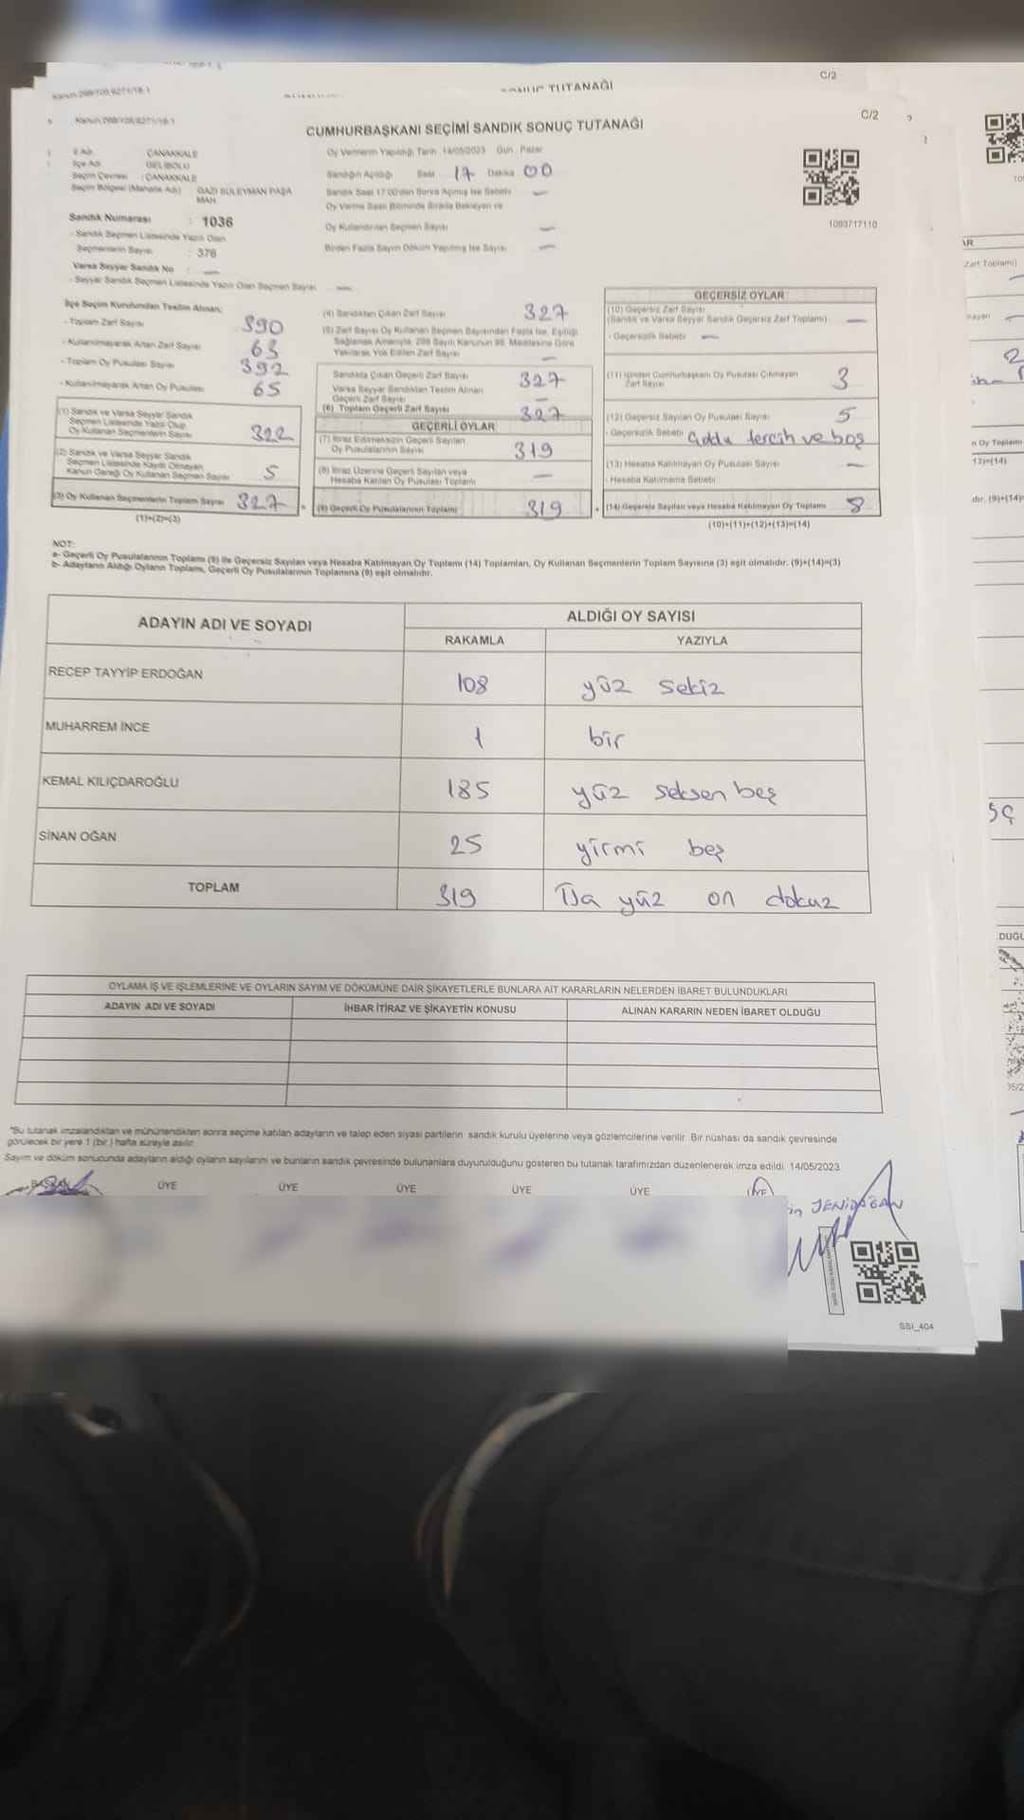 C/2
SONUÇ TUTANAĞI
C/2
CUMHURBAŞKANI SEÇİMİ SANDIK SONUÇ TUTANAĞI
İl Adı : ÇANAKKALE
İlçe Adı : GELİBOLU
Seçim Çevresi : ÇANAKKALE
Seçim Bölgesi (Mahalle Adı) : GAZİ SÜLEYMAN PAŞA
MAH.
Sandık Numarası : 1036
- Sandık Seçmen Listesinde Yazılı Olan
Seçmenlerin Sayısı : 376
Varsa Seyyar Sandık No : —
- Seyyar Sandık Seçmen Listesinde Yazılı Olan Seçmen Sayısı —
Oy Vermenin Yapıldığı Tarih 14/05/2023 Gün Pazar
Sandığın Açıldığı Saat 17 Dakika 00
Sandık Saat 17.00'den Sonra Açılmış İse Sebebi —
Oy Verme Saati Bitiminde Sırada Bekleyen ve
Oy Kullandırılan Seçmen Sayısı —
Birden Fazla Sayım Döküm Yapılmış İse Sayısı —
1093717110
İlçe Seçim Kurulundan Teslim Alınan;
- Toplam Zarf Sayısı 390
- Kullanılmayarak Artan Zarf Sayısı 63
- Toplam Oy Pusulası Sayısı 392
- Kullanılmayarak Artan Oy Pusulası 65
(1) Sandık ve Varsa Seyyar Sandık
Seçmen Listesinde Yazılı Olup
Oy Kullanan Seçmenlerin Sayısı 322
(2) Sandık ve Varsa Seyyar Sandık
Seçmen Listesinde Kayıtlı Olmayan
Kanun Gereği Oy Kullanan Seçmen Sayısı 5
(3) Oy Kullanan Seçmenlerin Toplam Sayısı 327
(1)+(2)=(3)
(4) Sandıktan Çıkan Zarf Sayısı 327
(5) Zarf Sayısı Oy Kullanan Seçmen Sayısından Fazla İse, Eşitliği
Sağlamak Amacıyla, 298 Sayılı Kanunun 98. Maddesine Göre
Yakılarak Yok Edilen Zarf Sayısı —
Sandıkta Çıkan Geçerli Zarf Sayısı 327
Varsa Seyyar Sandıktan Teslim Alınan
Geçerli Zarf Sayısı —
(6) Toplam Geçerli Zarf Sayısı 327
GEÇERLİ OYLAR
(7) İtiraz Edilmeksizin Geçerli Sayılan
Oy Pusulalarının Sayısı 319
(8) İtiraz Üzerine Geçerli Sayılan veya
Hesaba Katılan Oy Pusulası Toplamı —
(9) Geçerli Oy Pusulalarının Toplamı 319
GEÇERSİZ OYLAR
(10) Geçersiz Zarf Sayısı
(Sandık ve Varsa Seyyar Sandık Geçersiz Zarf Toplamı) —
- Geçersizlik Sebebi —
(11) İçinden Cumhurbaşkanı Oy Pusulası Çıkmayan
Zarf Sayısı 3
(12) Geçersiz Sayılan Oy Pusulası Sayısı 5
- Geçersizlik Sebebi çoklu tercih ve boş
(13) Hesaba Katılmayan Oy Pusulası Sayısı —
- Hesaba Katılmama Sebebi
(14) Geçersiz Sayılan veya Hesaba Katılmayan Oy Toplamı 8
(10)+(11)+(12)+(13)=(14)
NOT:
a- Geçerli Oy Pusulalarının Toplamı (9) ile Geçersiz Sayılan veya Hesaba Katılmayan Oy Toplamı (14) Toplamları, Oy Kullanan Seçmenlerin Toplam Sayısına (3) eşit olmalıdır. (9)+(14)=(3)
b- Adayların Aldığı Oyların Toplamı, Geçerli Oy Pusulalarının Toplamına (9) eşit olmalıdır.
ADAYIN ADI VE SOYADI
ALDIĞI OY SAYISI
RAKAMLA YAZIYLA
RECEP TAYYİP ERDOĞAN 108 yüz sekiz
MUHARREM İNCE 1 bir
KEMAL KILIÇDAROĞLU 185 yüz seksen beş
SİNAN OĞAN 25 yirmi beş
TOPLAM 319 Üç yüz on dokuz
OYLAMA İŞ VE İŞLEMLERİNE VE OYLARIN SAYIM VE DÖKÜMÜNE DAİR ŞİKAYETLERLE BUNLARA AİT KARARLARIN NELERDEN İBARET BULUNDUKLARI
ADAYIN ADI VE SOYADI İHBAR İTİRAZ VE ŞİKAYETİN KONUSU ALINAN KARARIN NEDEN İBARET OLDUĞU
"Bu tutanak imzalandıktan ve mühürlendikten sonra seçime katılan adayların ve talep eden siyasi partilerin sandık kurulu üyelerine veya gözlemcilerine verilir. Bir nüshası da sandık çevresinde
görülecek bir yere 1 (bir) hafta süreyle asılır.
Sayım ve döküm sonucunda adayların aldığı oyların sayılarını ve bunların sandık çevresinde bulunanlara duyurulduğunu gösteren bu tutanak tarafımızdan düzenlenerek imza edildi. 14/05/2023
BAŞKAN ÜYE ÜYE ÜYE ÜYE ÜYE ÜYE
SSI_404